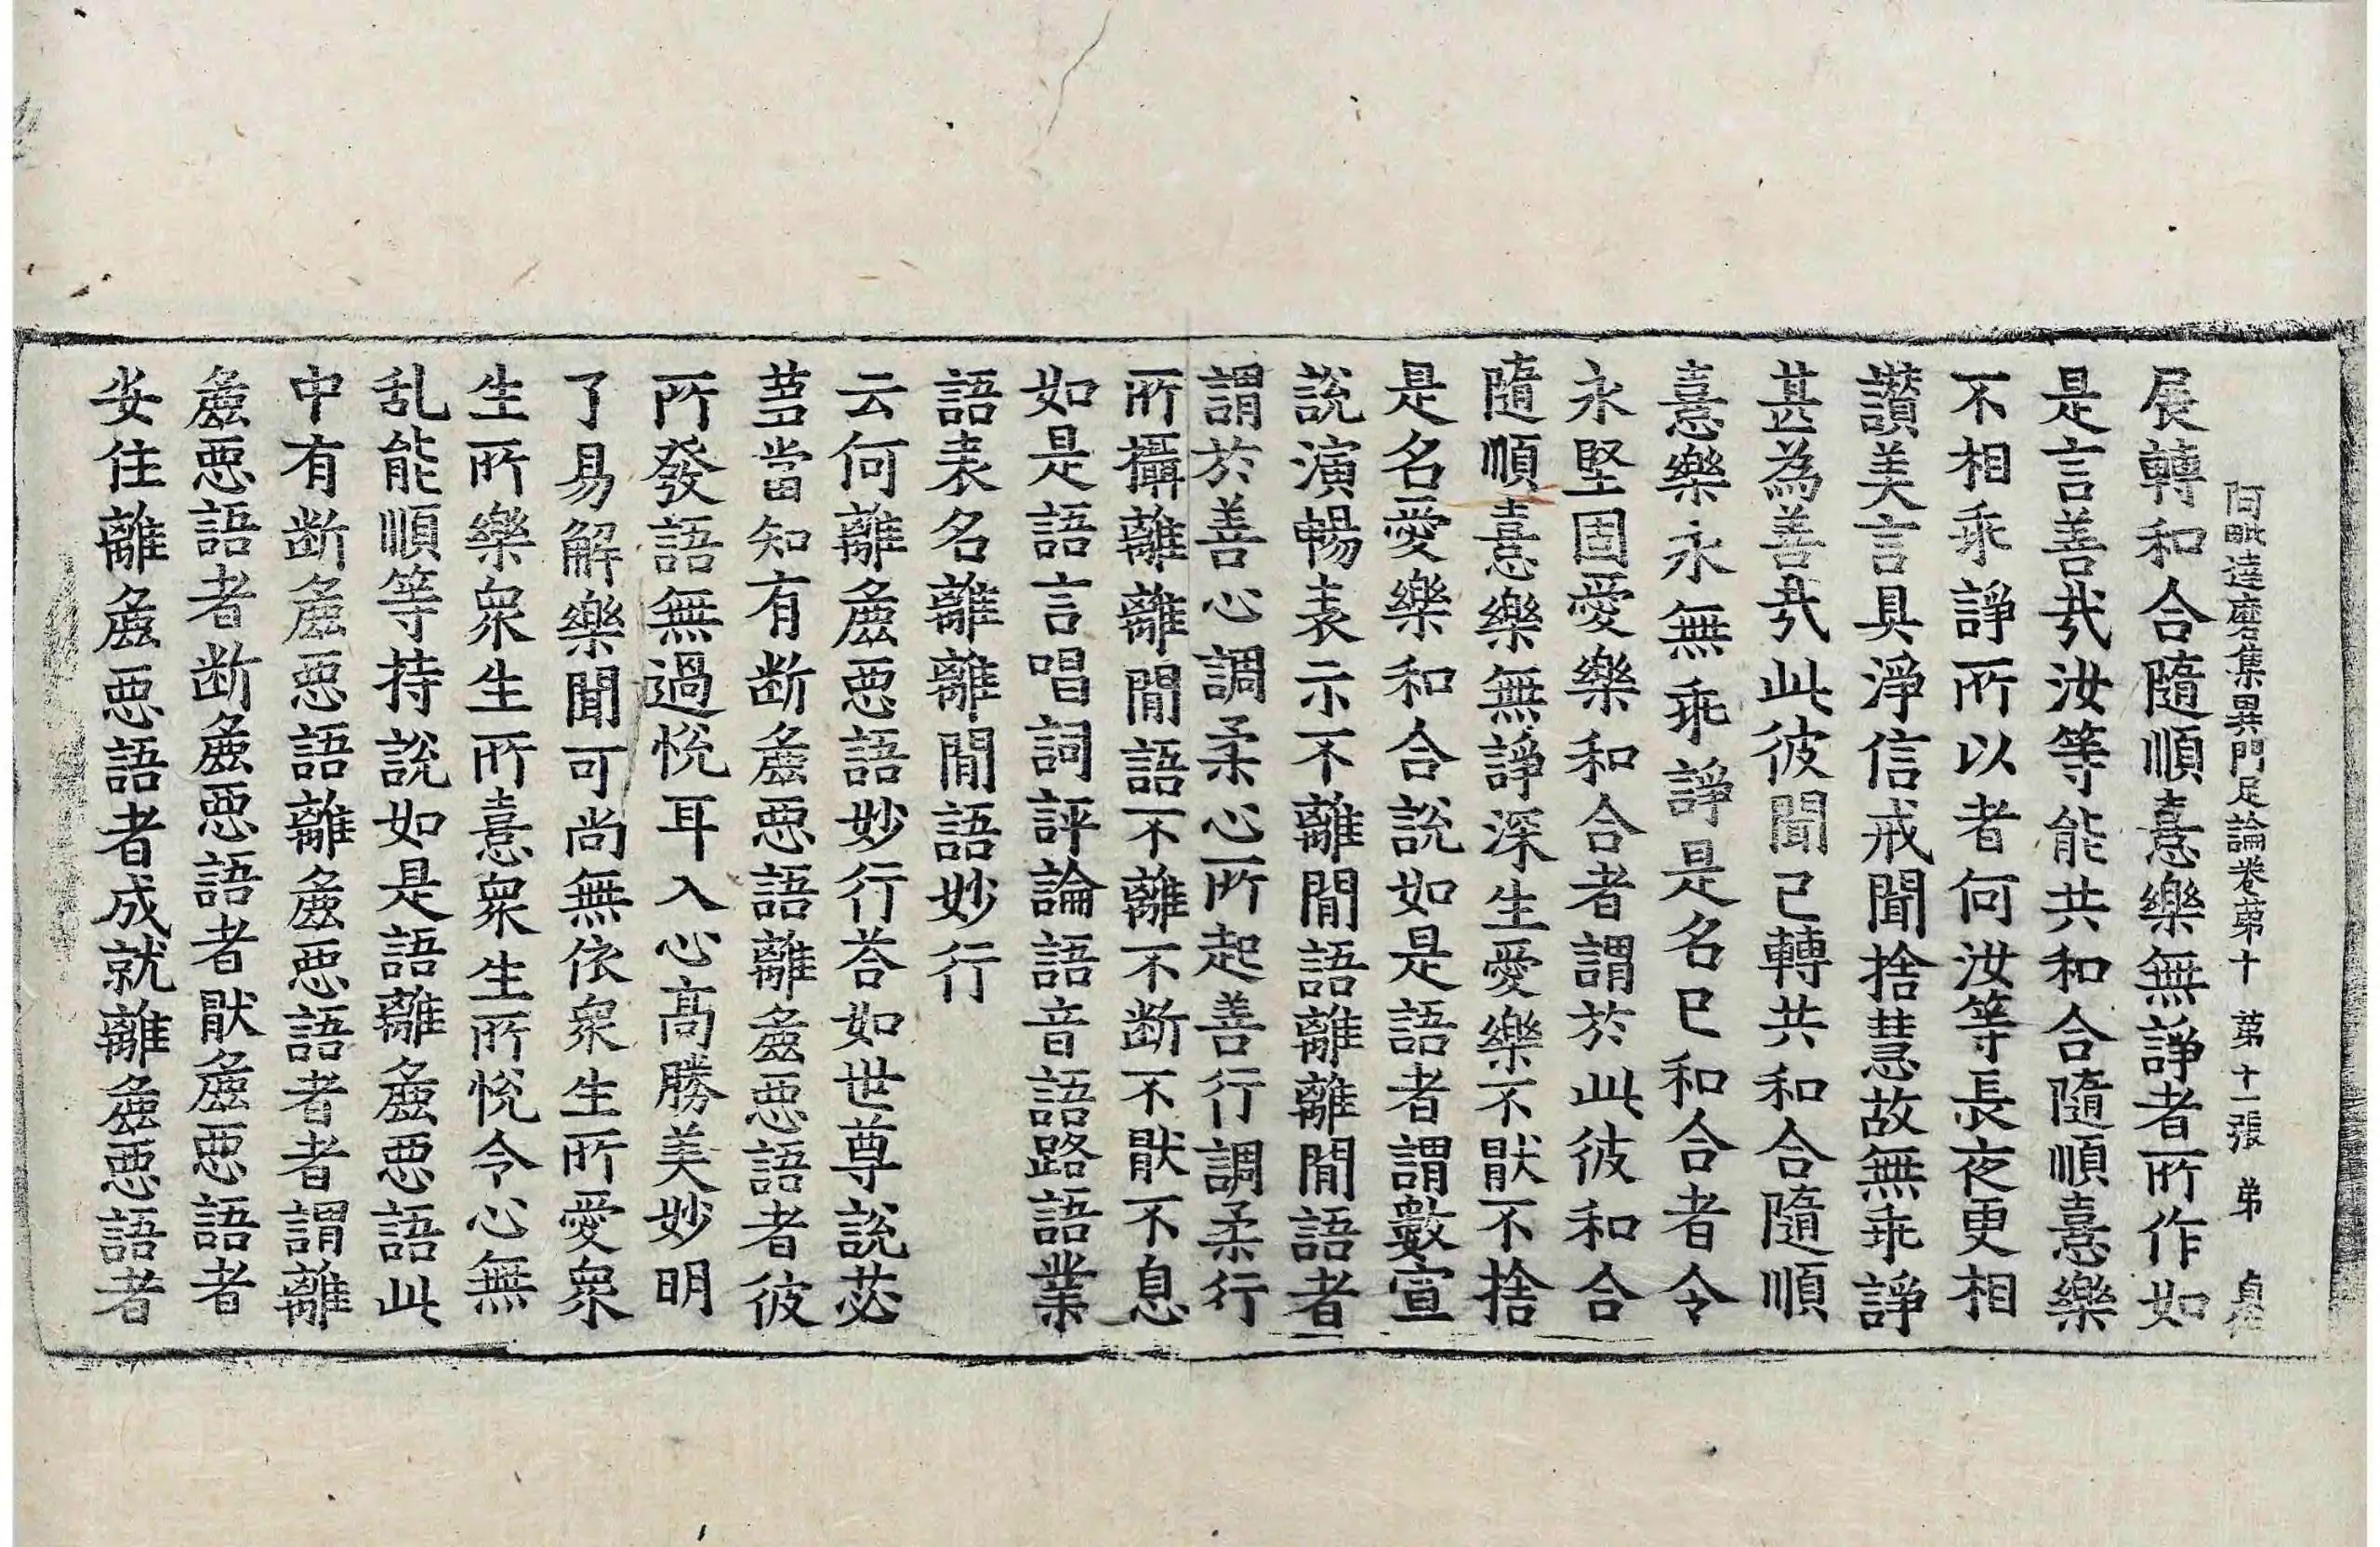 阿毗達磨集異門足論卷苐十 苐十一張 苐 貞
展轉和合隨順憙樂無諍者所作如
是言善㢤汝等能共和合隨順憙樂
不相乖諍所以者何汝等長夜更相
讃美言具淨信戒聞捨慧故無乖諍
甚為善㢤此彼聞已轉共和合隨順
憙樂永無乖諍是名已和合者令
永堅固愛樂和合者謂於此彼和合
隨順憙樂無諍深生愛樂不猒不捨
是名愛樂和合說如是語者謂數宣
說演暢表示不離間語離離間語者
謂於善心調柔心所起善行調柔行
所攝離離間語不離不断不猒不息
如是語言唱詞評論語音語路語業
語表名離離間語妙行
云何離麁惡語妙行荅如世尊說苾
蒭當知有断麁惡語離麁惡語者彼
所發語無過悅耳入心髙勝美妙明
了易解樂聞可尚無依衆生所愛衆
生所樂衆生所憙衆生所悅令心無
乱能順等持說如是語離麁惡語此
中有断麁惡語離麁惡語者者謂離
麁惡語者断麁惡語者猒麁惡語者
安住離麁惡語者成就離麁惡語者